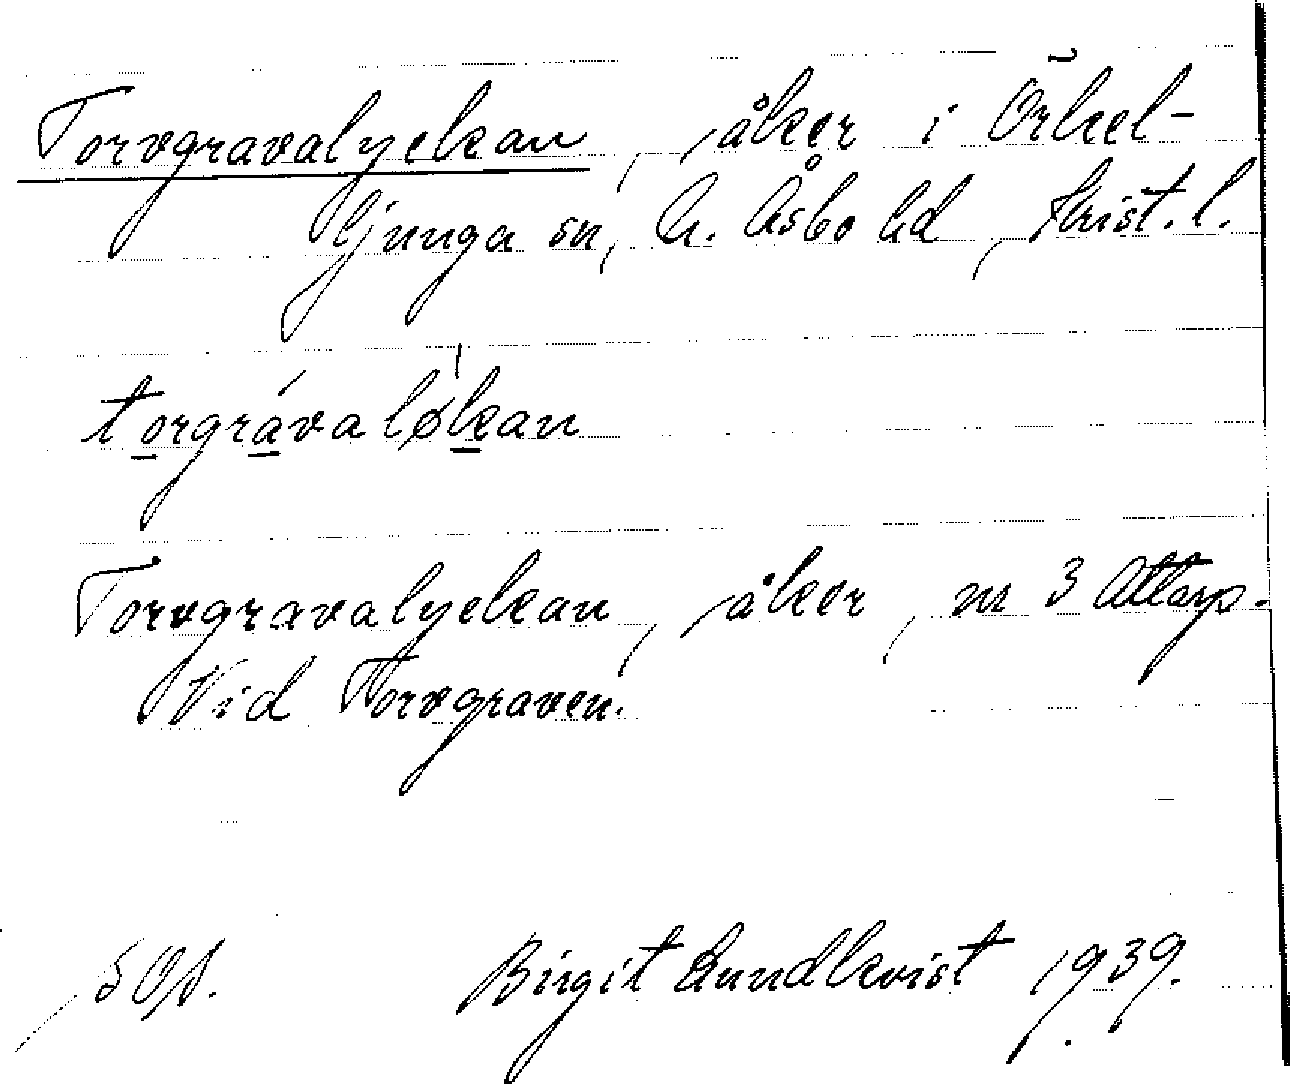 Torvgravalyckan, åker i Örkel-
ljunga sn, N. Åsbo hd, Krist. l.
torgrávaløkan
Torvgravalyckan, åker, nr 3 Attarp.
Vid Torvgraven.
Birgit Lundkvist 1939.